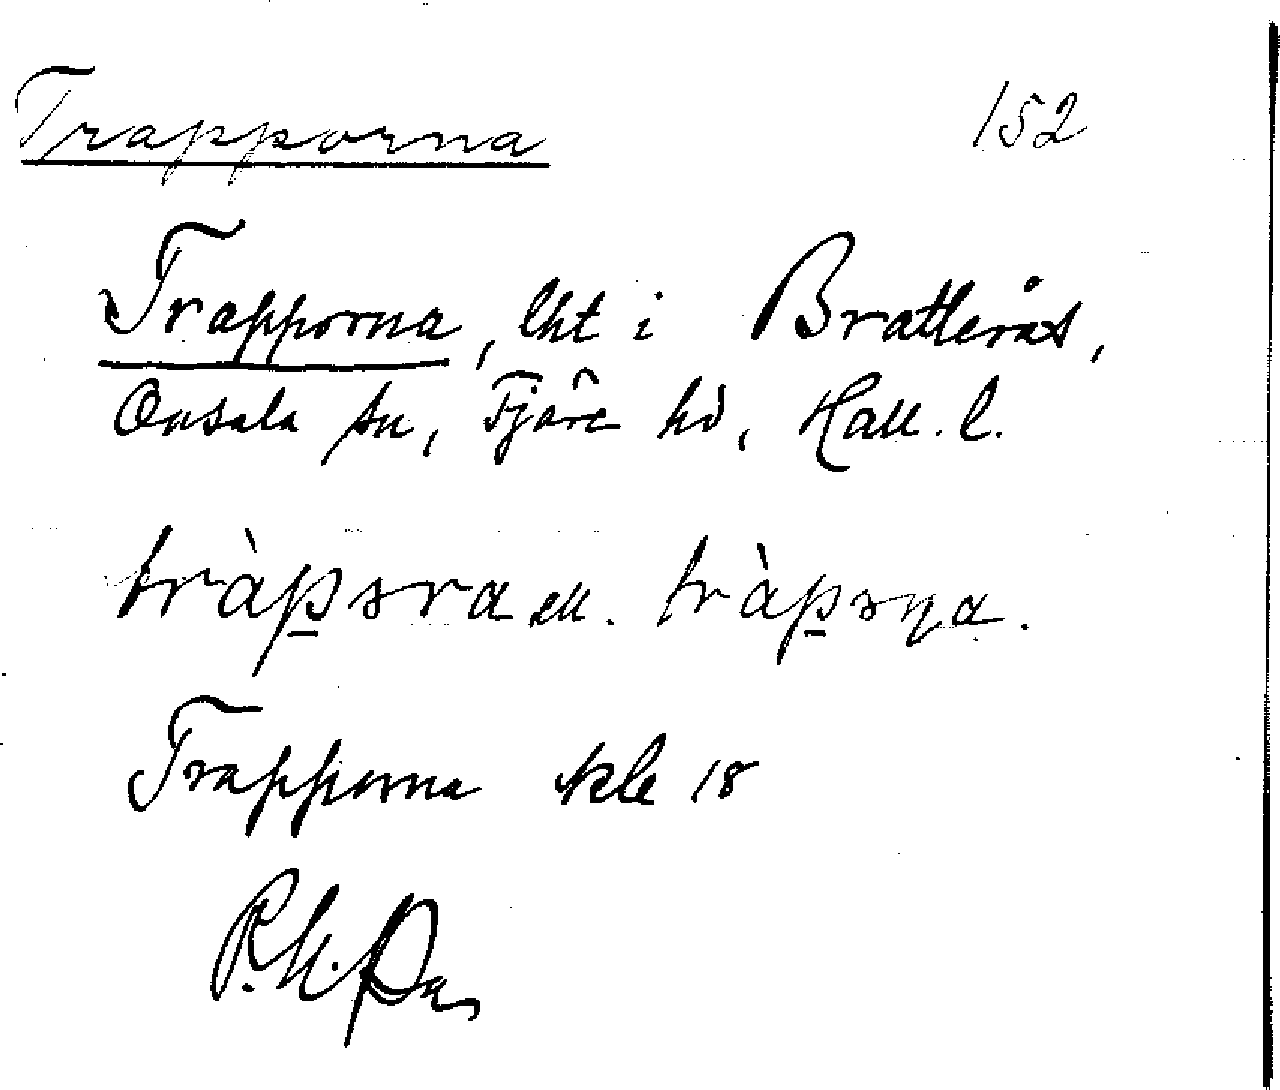 Trapporna 152
Trapporna, lht i Bratterås,
Onsala sn, Fjäre hd, Hall. l.
tràp̲ɜra ell. tràp̲ɜɳa.
Trapporna skk 18